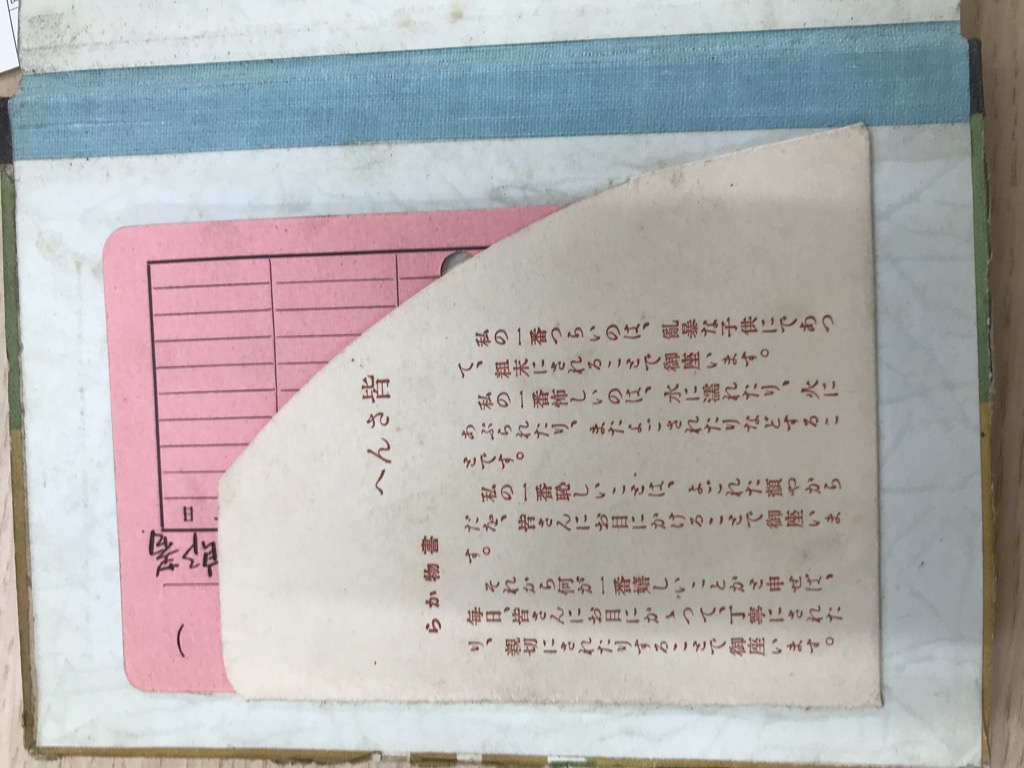 皆さんへ
書物から
私の一番つらいのは、亂暴な子供にであつ
て、粗末にされることで御座います。
私の一番怖しいのは、水に濡れたり、火に
あぶられたり、またよごされたりなどするこ
とです。
私の一番恥しいことは、よごれた顏やから
だを、皆さんにお目にかけることで御座いま
す。
それから何が一番嬉しいことかと申せば、
毎日、皆さんにお目にかゝつて、丁寧にされた
り、親切にされたりすることで御座います。
日